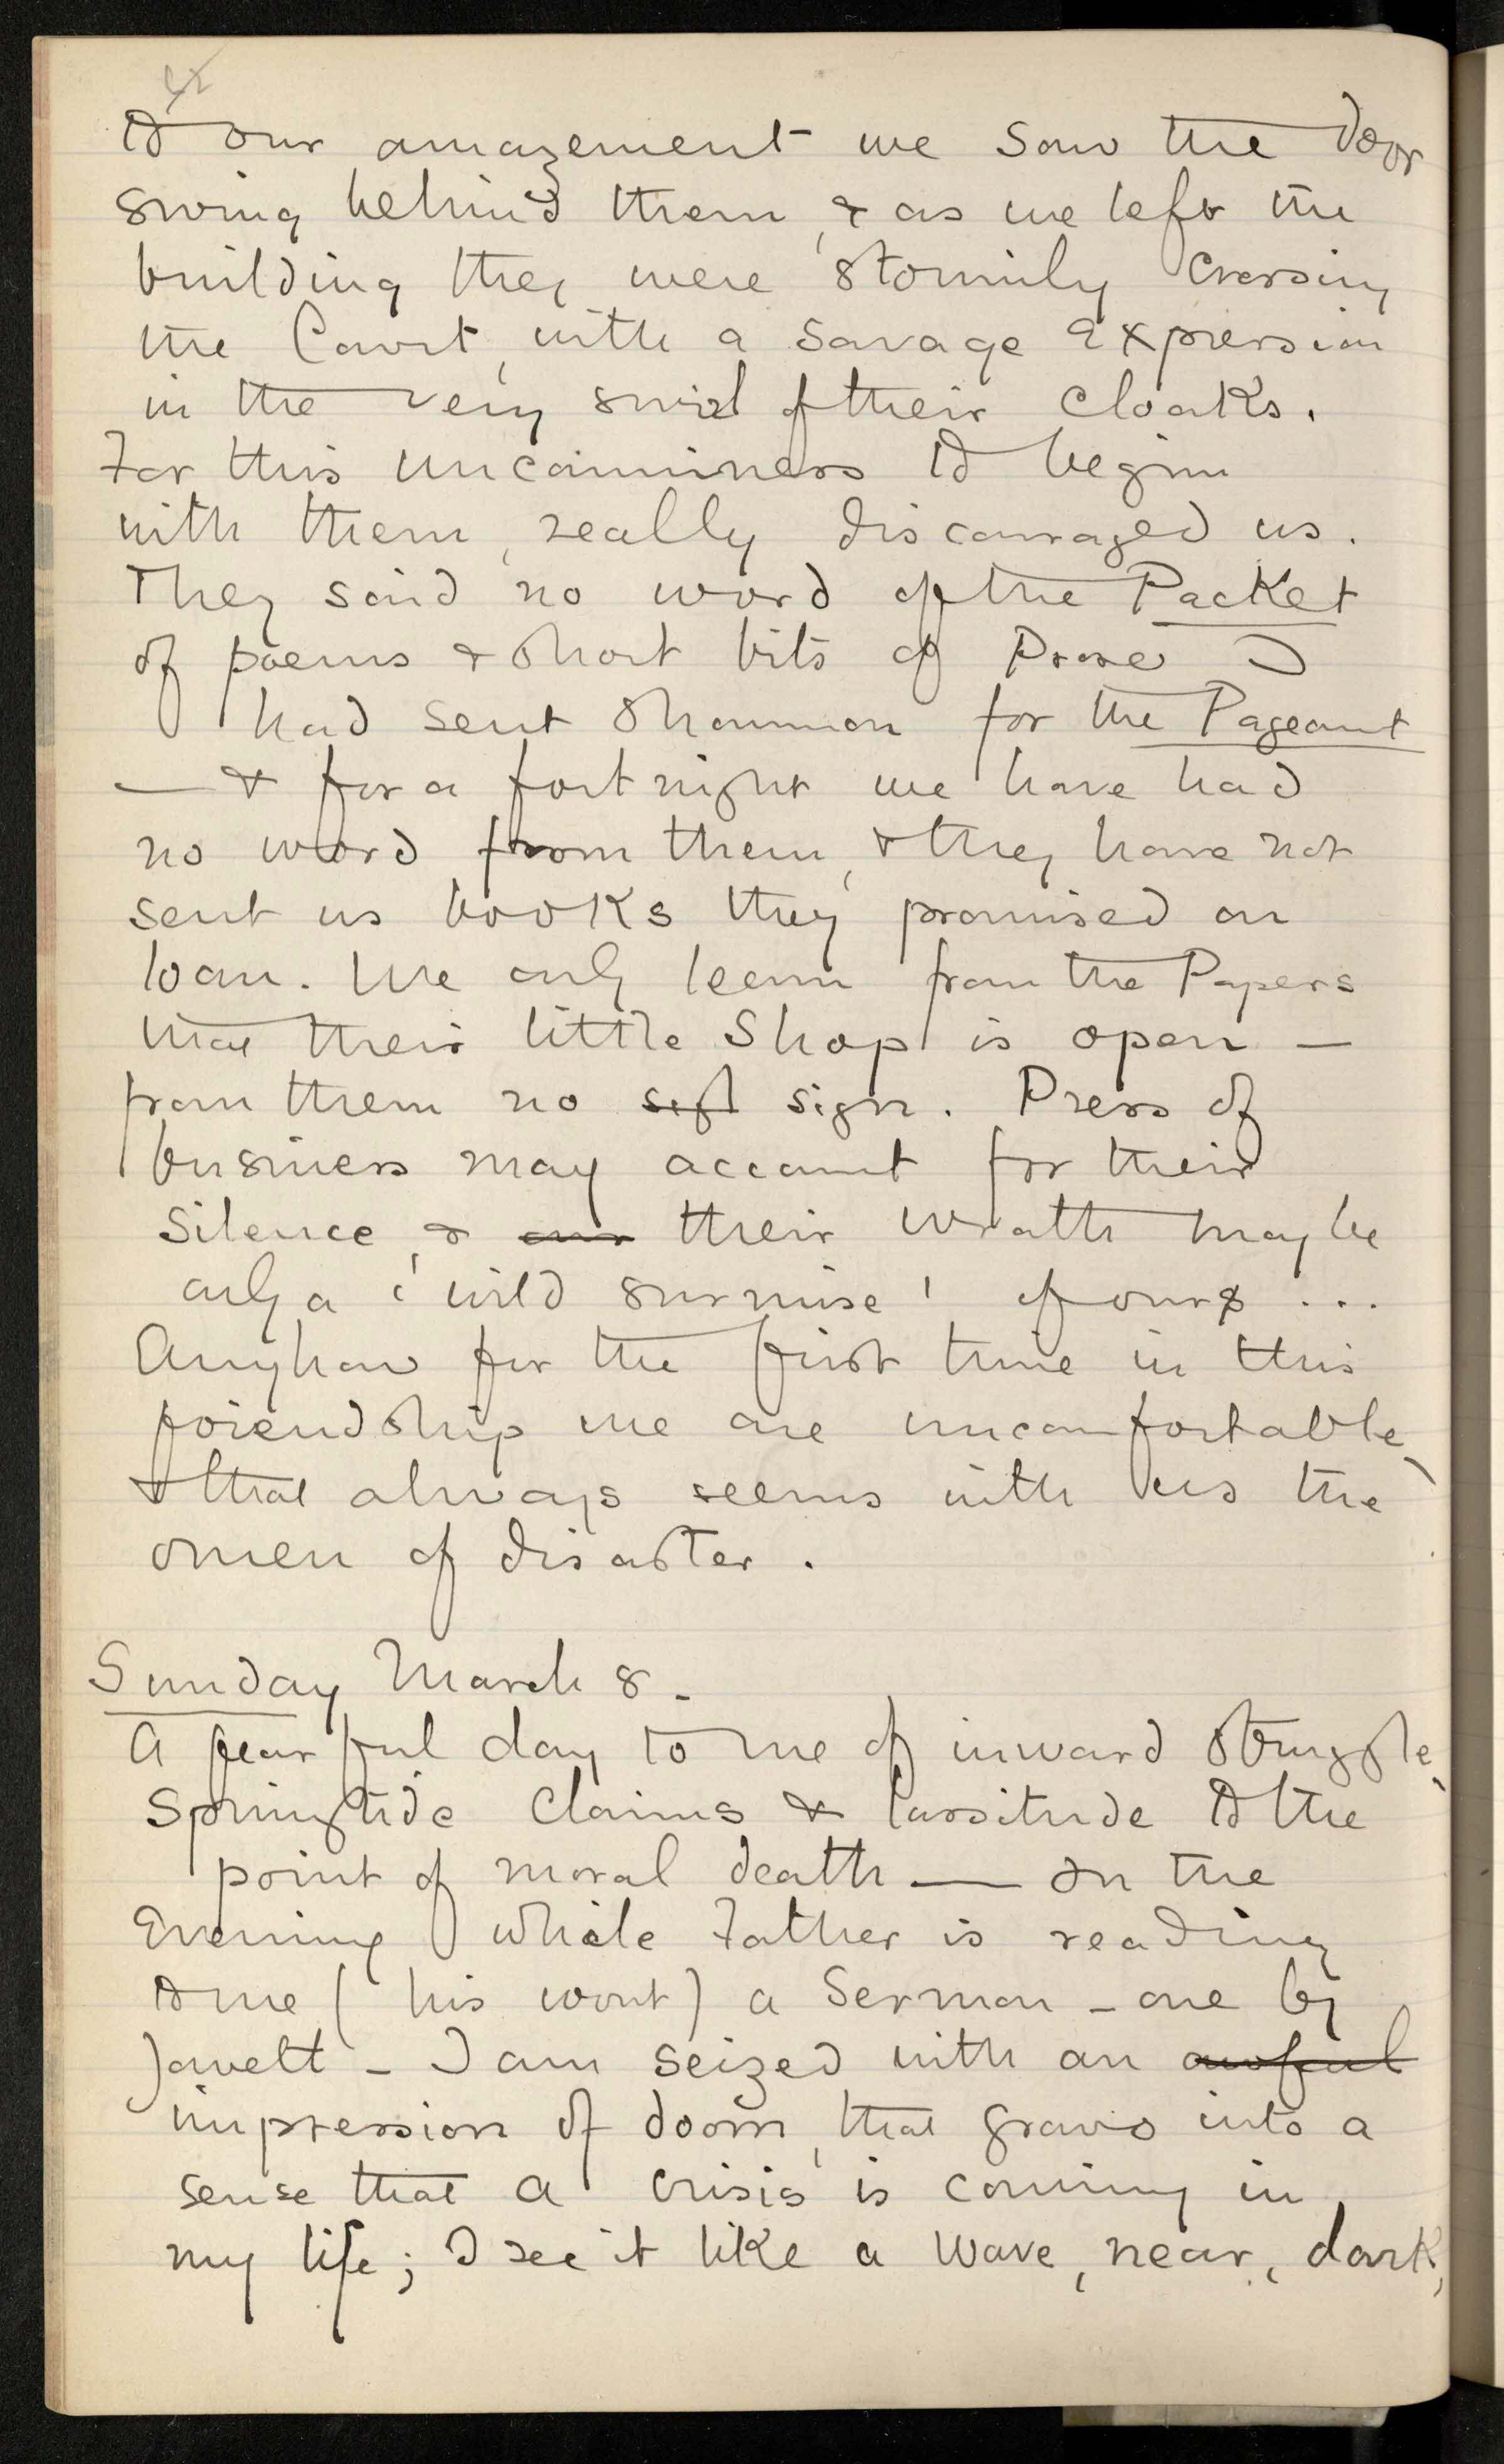 42
to our amazement we saw the door
swing behind them, & as we left the
building they were stormily crossing
the Court, with a savage expression
in the very swirl of their cloaks.
For this uncanniness to begin
with them, really discouraged us.
They said no word of the Packet
of poems & short bits of Prose I
had sent Shannon for the Pageant
— & for a fortnight we have had
no word from them, & they have not
sent us books they promised on
loan. We only learn from the Papers
that their little Shop is open —
from them no sign. Press of
business may account for their
silence, & our their wrath may be
only a 'wild surmise' of ours ...
Anyhow for the first time in this
friendship we are uncomfortable,
& that always seems with us the
omen of disaster.
Sunday March 8.
A fearful day to me of inward struggle,
Springtide claims & lassitude to the
point of moral death — In the
Evening while Father is reading
to me (his wont) a Sermon – one by
Jowett – I am seized with an awful
impression of doom, that grows into a
sense that a crisis is coming in
my life; I see it like a wave, near, dark,